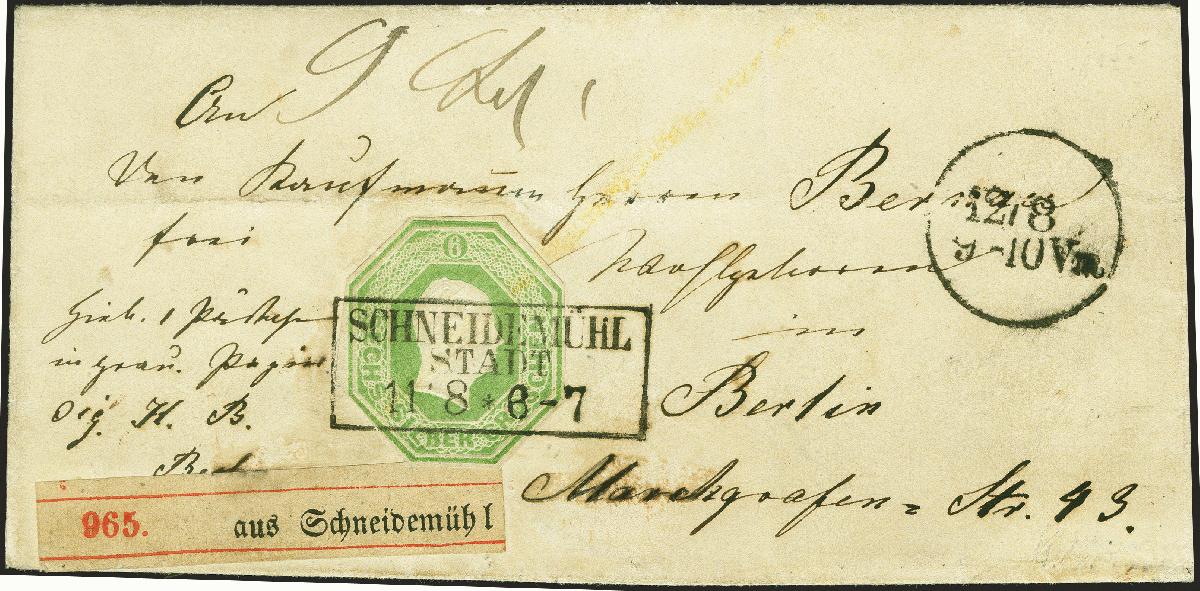 9
An
Den Kaufmann Herrn
frei
Wohlgeboren
in
Berlin
Marckgrafen= Str. 43.
Hieb. 1
in grau. Papier
Sig. H. B.
Berl
6
SCHNEIDEMÜHL
STADT
11 8 * 6-7
12/8
9-10 Vm
965. aus Schneidemühl